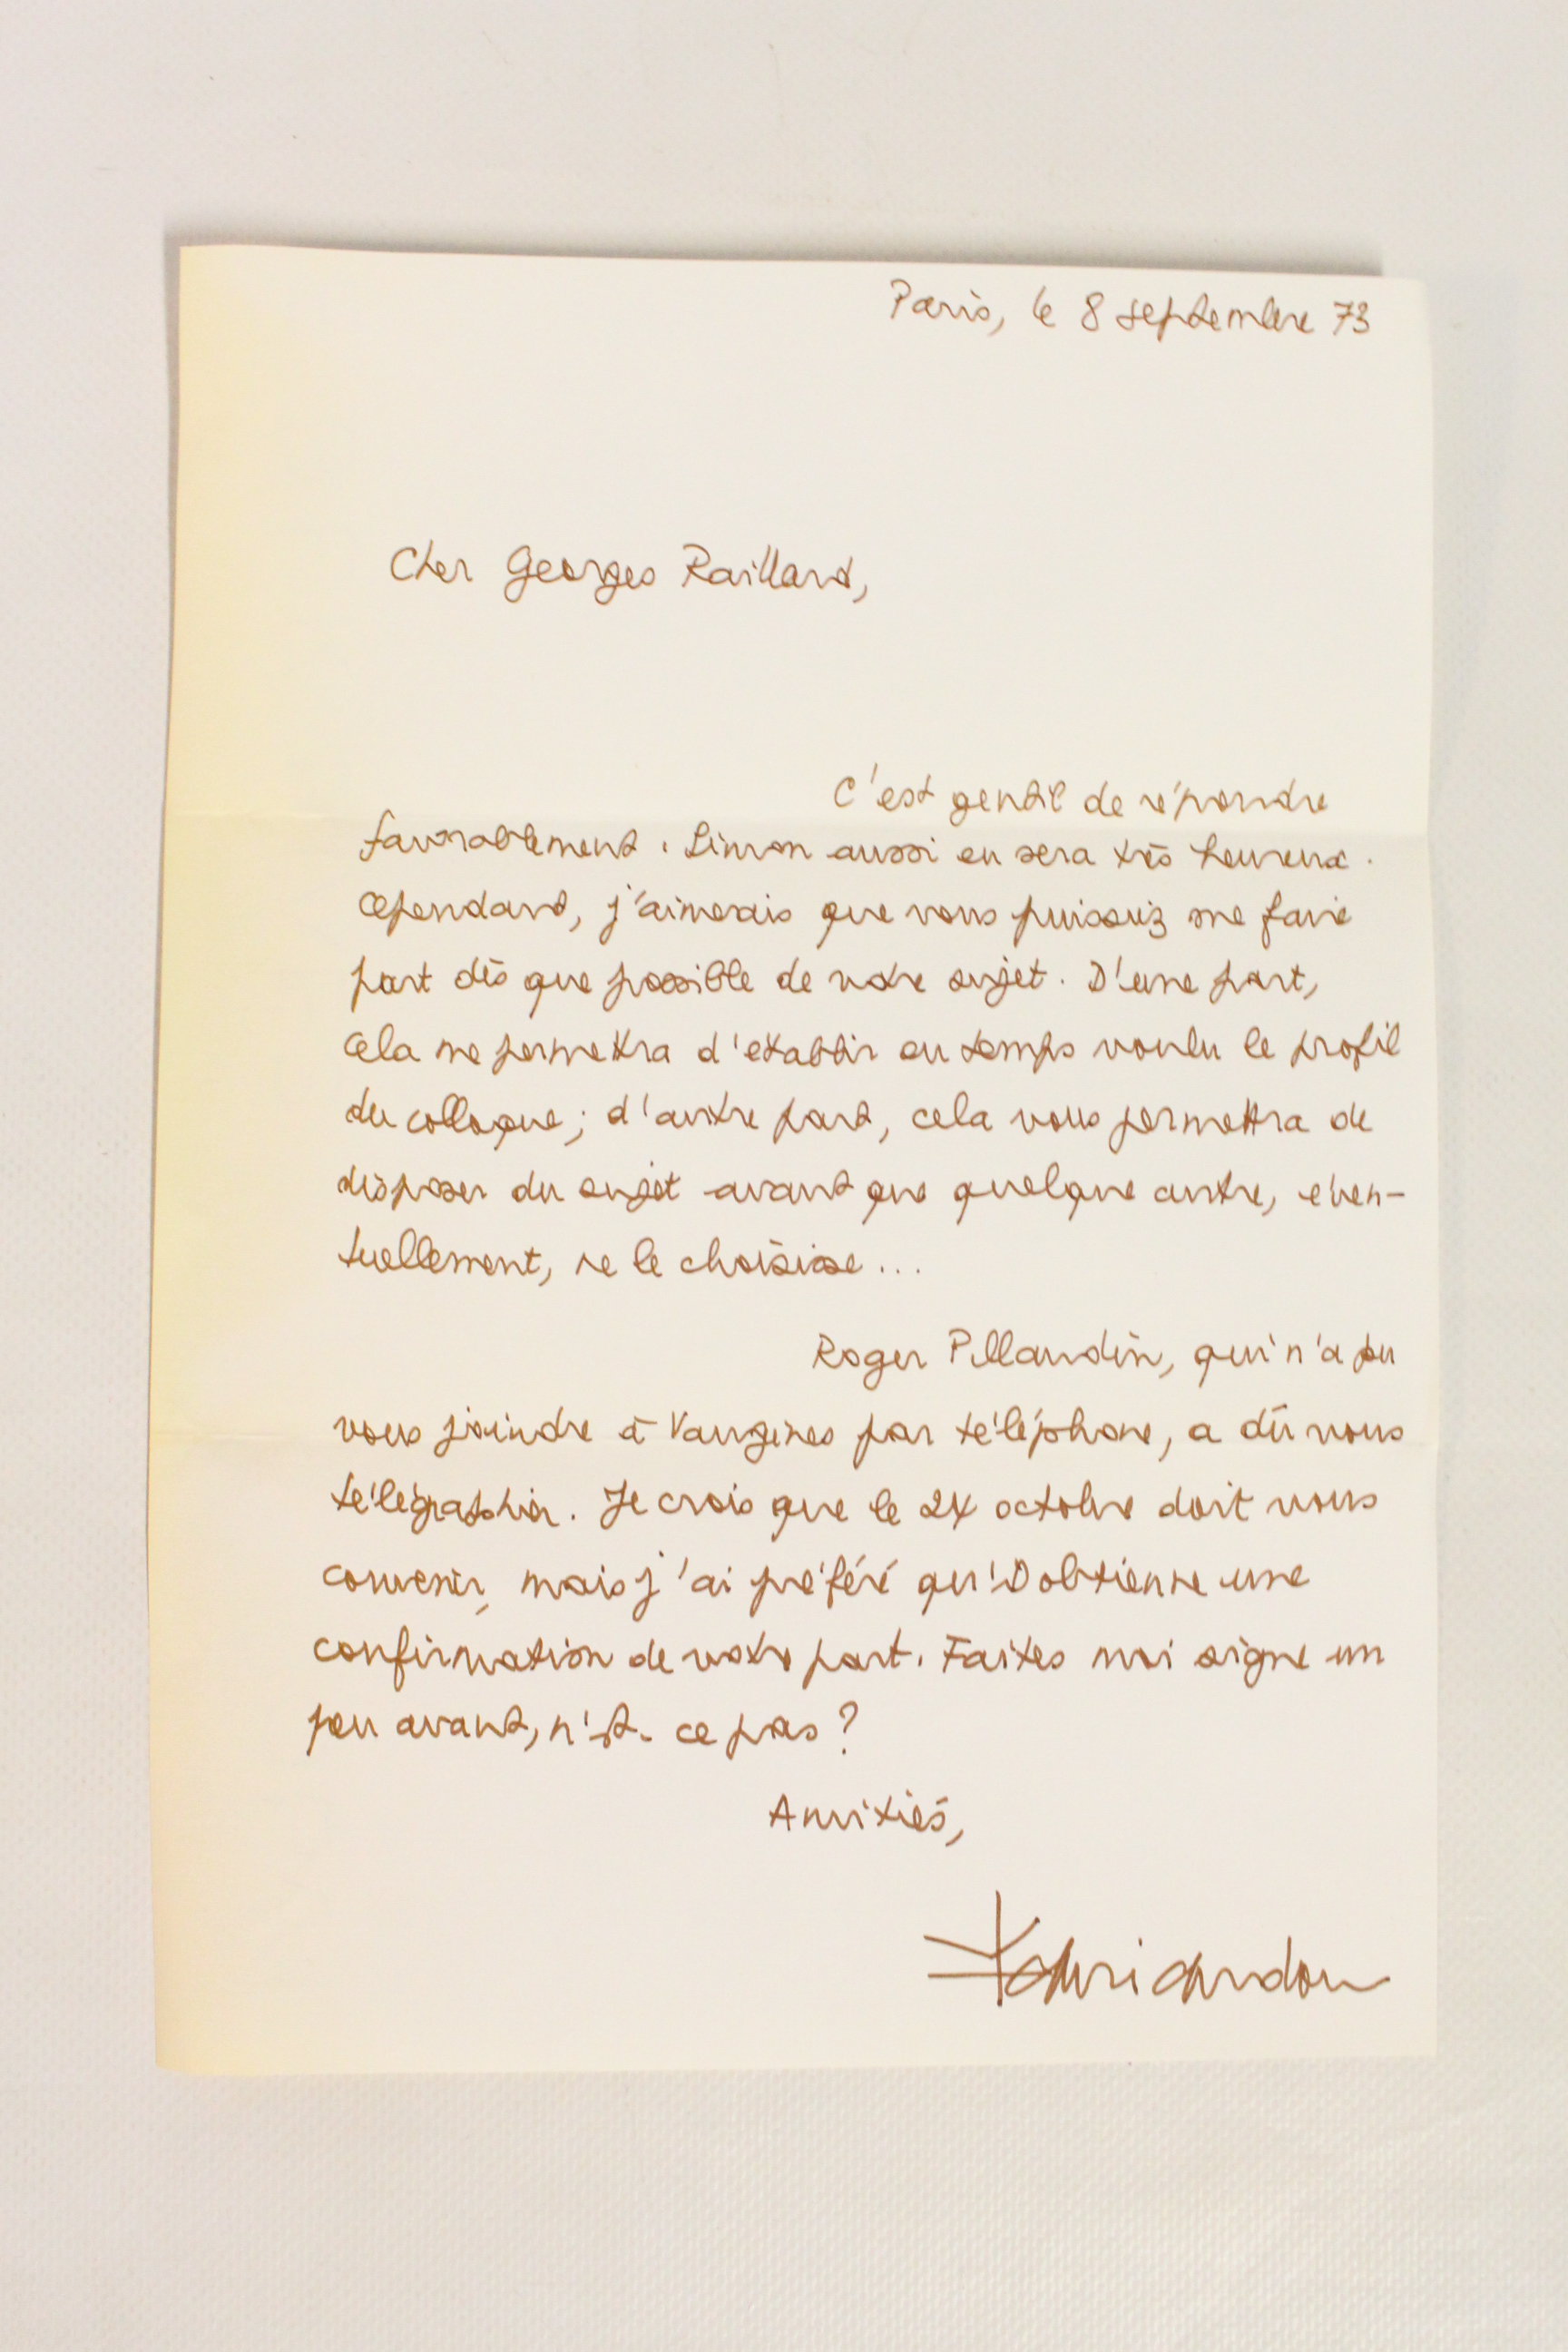 Paris, le 8 septembre 73
Cher Georges Raillard,
C'est gentil de répondre
favorablement. Simon aussi en sera très heureux.
Cependant, j'aimerais que vous puissiez me faire
part dès que possible de votre sujet. D'une part,
cela me permettra d'établir en temps voulu le profil
du colloque; d'autre part, cela vous permettra de
disposer du sujet avant que quelque autre, éven-
tuellement, ne le choisisse...
Roger Pillaudin, qui n'a pu
vous joindre à Vaugines par téléphone, a dû vous
télégraphier. Je crois que le 24 octobre doit vous
convenir, mais j'ai préféré qu'il obtienne une
confirmation de votre part. Faites moi signe un
peu avant, n'est-ce pas?
Amitiés,